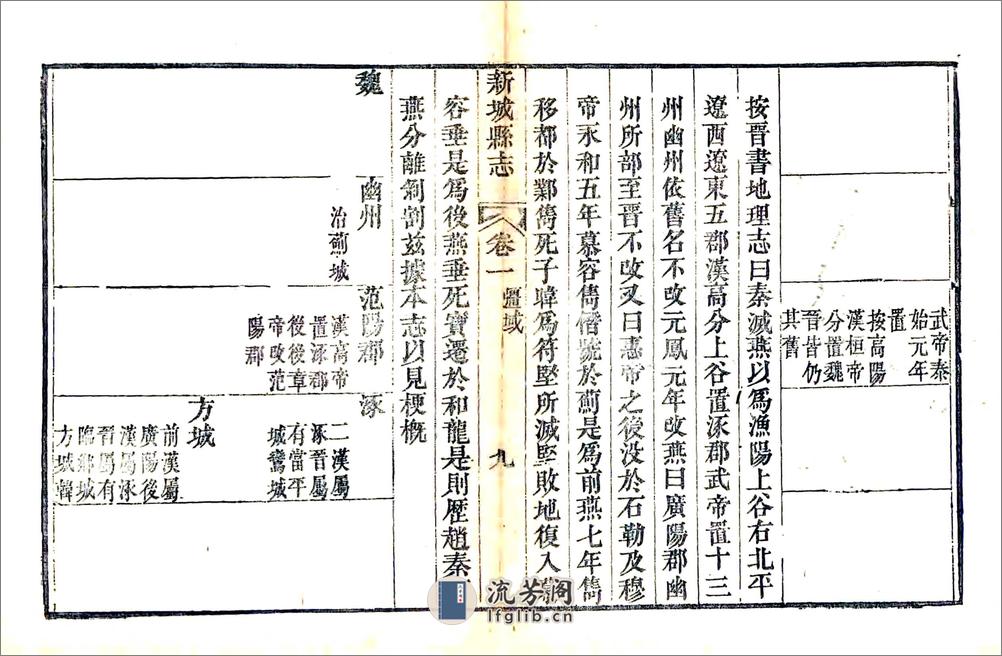 武帝泰
始元年
置
按高陽
漢桓帝
分置魏
晉皆仍
其舊
按晉書地理志曰秦滅燕以爲漁陽上谷右北平
遼西遼東五郡漢高分上谷置涿郡武帝置十三
州幽州依舊名不改元鳳元年改燕曰廣陽郡幽
州所部至晉不改又曰惠帝之後没於石勒及穆
帝永和五年慕容儁僭號於薊是爲前燕七年儁
移都於鄴儁死子暐爲符堅所滅堅敗地復入慕
新城縣志
卷一
疆域
九
容垂是爲後燕垂死寶遷於和龍是則歷趙秦
燕分離剜割茲據本志以見梗概
魏
幽州
治薊城
范陽郡
漢高帝
置涿郡
後後章
帝改范
陽郡
涿
二漢屬
涿晉屬
有當平
城鸞城
方城
前漢屬
廣陽後
漢屬涿
晉屬有
臨鄉城
方城韓
流芳閣
lfglib.cn